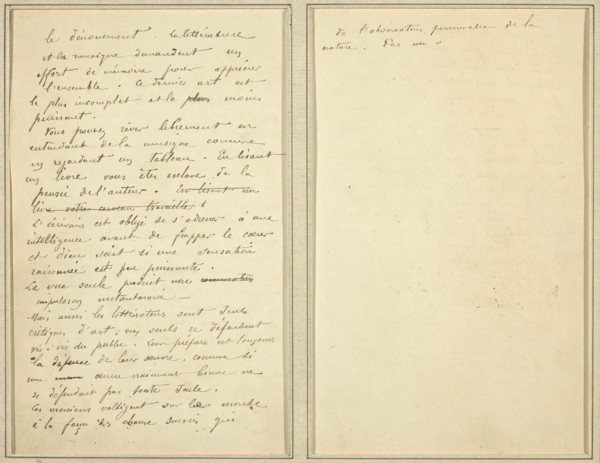 le dénouement. La littérature
et la musique demandent un
effort de mémoire pour apprécier
l'ensemble. Ce dernier art est
le plus incomplet et le plus moins
puissant.
Vous pouvez rêver librement en
entendant de la musique comme
en regardant un tableau. En lisant
un livre vous êtes esclave de la
pensée de l'auteur. En lisant un
livre votre cerveau travaille
L'écrivain est obligé de s'adresser à une
intelligence avant de frapper le cœur
et Dieu sait si une sensation
raisonnée est peu puissante.
La vue seule produit une
impulsion instantanée —
Mais aussi les littérateurs sont seuls
critiques d'art; eux seuls se défendent
vis à vis du public. Leur préface est toujours
la défense de leur œuvre, comme si
une œuvre vraiment bonne ne
se défendait pas toute seule.
Ces messieurs voltigent sur le monde
à la façon des chauve souris qui
de l'observateur personnelle de la
nature. Pas un